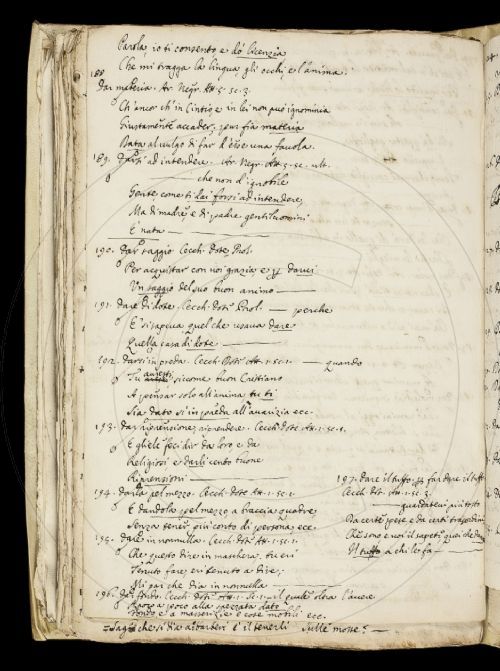 Parola, io ti consento e dò licenzia
Che mi tragga la lingua gli occhi, e l'anima.
188
Dar materia. Ar. Negr. Att. 5. sc. 3.
Ch'ancor ch'in Cintio e in lei non può ignominia
Giustamente accader, pur fia materia
Data al vulgo di far d'esse una favola.
189. Darsi ad intendere. Ar. Negr. Att. 5. sc. ult.
che non d'ignobile
Gente come ti hai forsi ad intendere,
Ma di madre e di padre gentiluomini
È nata
190. Dar saggio Cecch. Dote Prol.
Per acquistar con voi grazia e per darvi
Un saggio del suo buon animo
191. Dare di dote. Cecch. Dot. Prol. — perche
E' si sapeva quel che usava dare
Quella casa di dote
192. Darsi in preda. Cecch. Dot. Att. 1. sc. 1. — quando
Tu avesti siccome buon Cristiano
A pensar solo all'anima tu ti
Sia dato sì in preda all'avarizia ecc.
193. Dar riprensione, riprendere. Cecch. Dote Att. 1. sc. 1.
E gliele feci dir da loro e da
Religiosi e darli cento buone
Riprensioni
194. Darla pel mezzo. Cecch. Dote Att. 1. sc. 1.
E dandola pel mezzo a braccia quadre
Senza tener più conto di persona, ecc.
195. Dare in nonnulla. Cecch. Dot. Att. 1. sc. 1.
Che questo dire in maschera tu eri
Tenuto fare, eri tenuto a dire,
Mi par che dia in nonnulla
196. Dar fondo. Cecch. Dot. Att. 1. sc. 1.
A poco a poco alla spezzata dato
Fondo e a masserizie e cose mobili ecc.
che si dia a' barberi è il tenerli sulle mosse?
197. Dare il tuffo, per far dare il tuffo
Cecch. Dot. Att. sc. 2.
guardatevi più tosto
Da certe spese, e da certi trasordini
Che sono e voi il sapete quei che dan
Il tuffo a chi lo fa